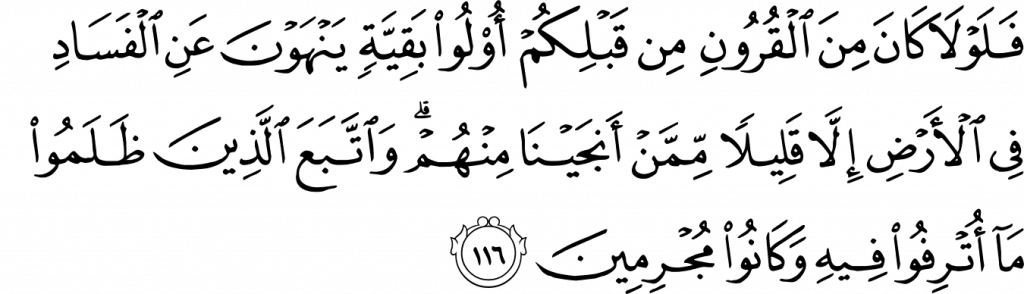 فَلَوۡلَا كَانَ مِنَ ٱلۡقُرُونِ مِن قَبۡلِكُمۡ أُوْلُواْ بَقِيَّةٖ يَنۡهَوۡنَ عَنِ ٱلۡفَسَادِ
فِي ٱلۡأَرۡضِ إِلَّا قَلِيلٗا مِّمَّنۡ أَنجَيۡنَا مِنۡهُمۡۗ وَٱتَّبَعَ ٱلَّذِينَ ظَلَمُواْ
مَآ أُتۡرِفُواْ فِيهِ وَكَانُواْ مُجۡرِمِينَ ١١٦